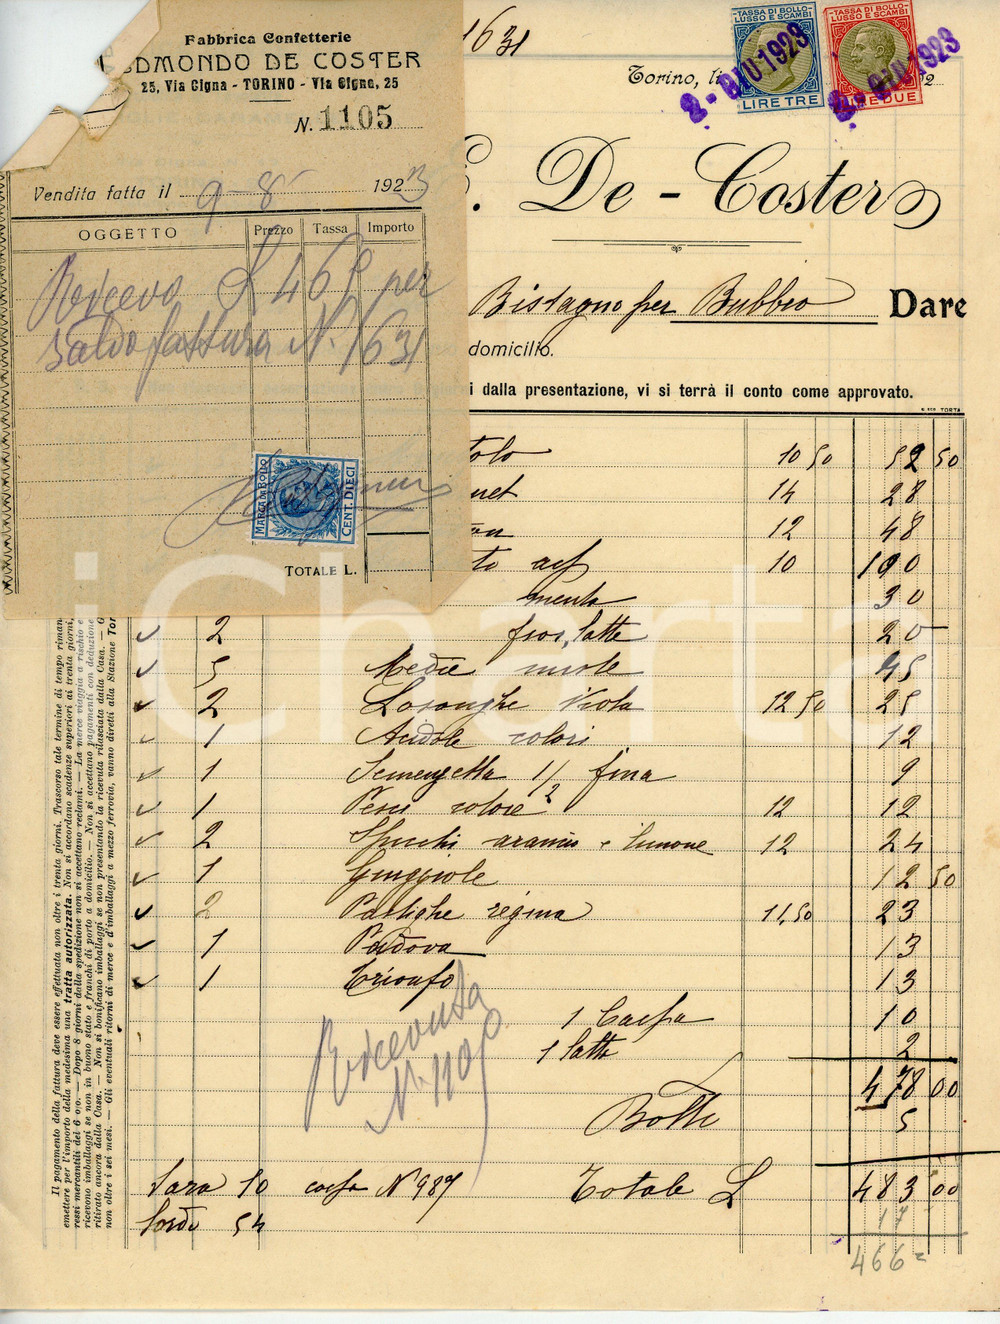 Fabbrica Confetterie
EDMONDO DE COSTER
25, Via Cigna - TORINO - Via Cigna, 25
N. 1105
Vendita fatta il 9-8 1923
OGGETTO Prezzo Tassa Importo
Ricevo L 465 per
saldo fattura N. 1631
MARCA DA BOLLO
CENT. DIECI
TOTALE L.
1631
Torino, li
2
TASSA DI BOLLO
LUSSO E SCAMBI
LIRE TRE
TASSA DI BOLLO
LUSSO E SCAMBI
LIRE DUE
2 - GIU 1923
2 - GIU 1923
E. De-Coster
Bistagno per Bubbio Dare
domicilio.
i dalla presentazione, vi si terrà il conto come approvato.
TORTA
10 50 52 50
14 28
12 48
10 190
menta 30
2 fior, latte 20
5 Medie miste 45
2 Losanghe Viola 12 50 25
1 colori 12
1 1/2 fina 9
1 Pesci colore 12 12
2 Specchi arancio e limone 12 24
1 Giuggiole 12 50
2 Pastiglie regina 11,50 23
1 Padova 13
1 Trionfo 13
1 Cassa 10
1 latta 2
478 00
Bolli 5
Ricevuta
N. 1105
Tara 10 cassa N 987 Totale L 483 00
Lordo 54 17
466=
Il pagamento della fattura deve essere effettuata non oltre i trenta giorni. Trascorso tale termine di tempo riman
emettere per l'importo della medesima una tratta autorizzata. Non si accordano scadenze superiori ai trenta giorni,
ressi mercantili del 6 o/o. — Dopo 8 giorni dalla spedizione non si accettano reclami. — La merce viaggia a rischio e
ricevono imballaggi se non in buono stato e franchi di porto a domicilio. — Non si accettano pagamenti con deduzione
ritirato ancora dalla Casa. — Non si bonificano imballaggi se non presentando la ricevuta rilasciata dalla Casa. — G
non oltre i sei mesi. — Gli eventuali ritorni di merce e d'imballaggi a mezzo ferrovia, vanno diretti alla Stazione Tor
iCharta